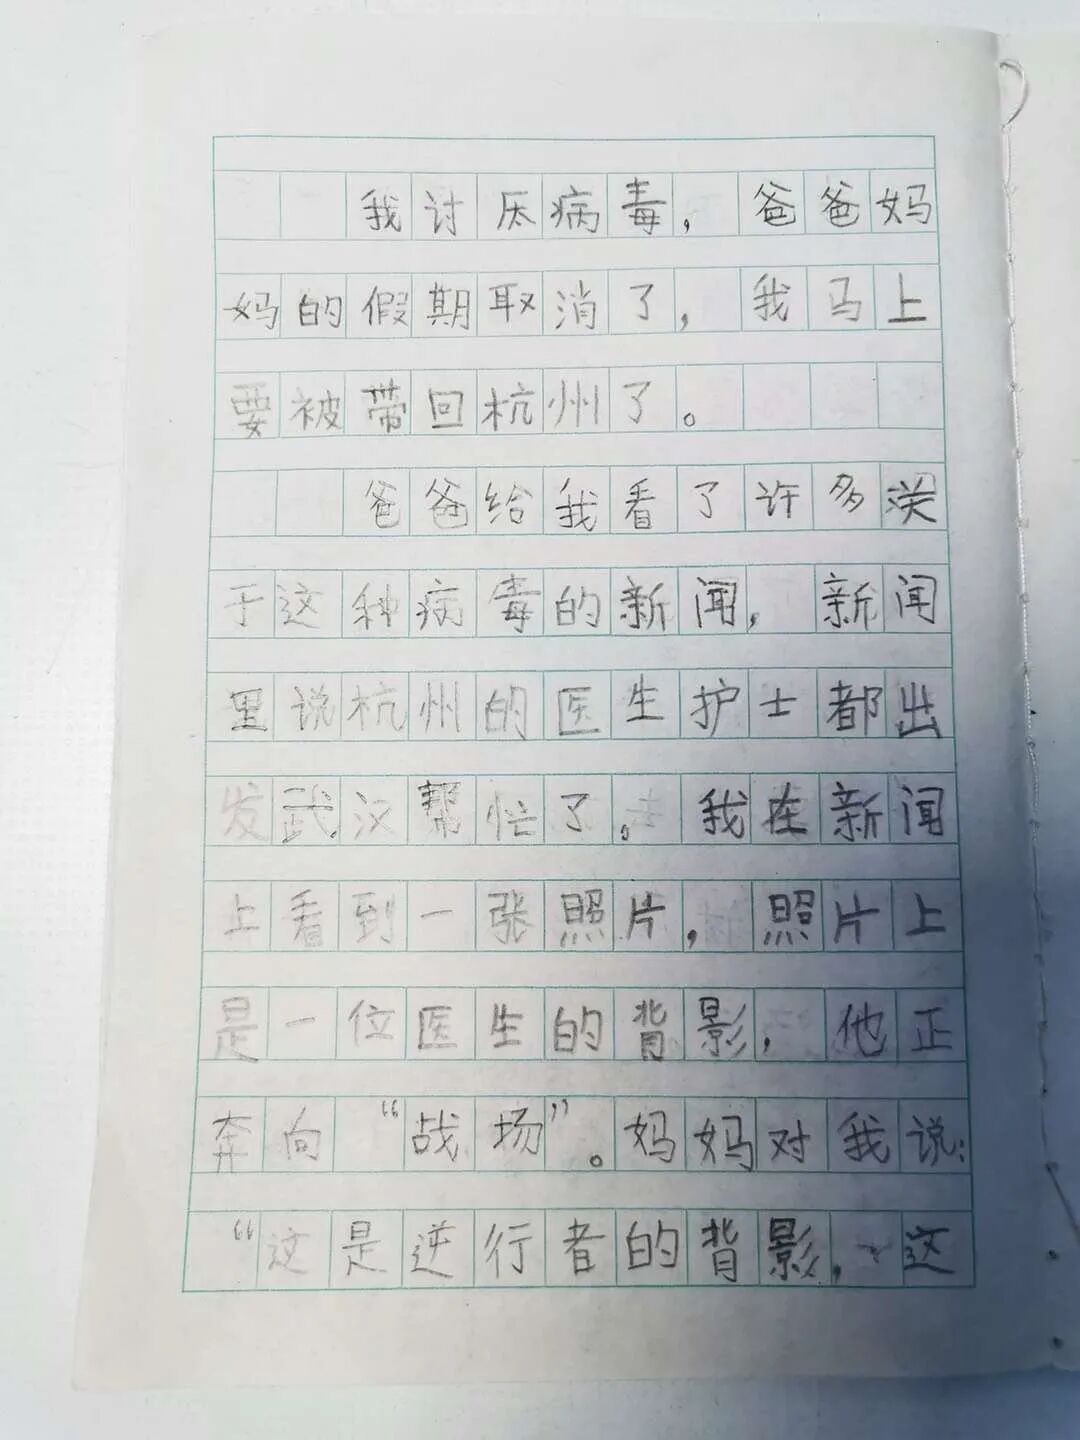 我讨厌病毒,爸爸妈
妈的假期取消了,我马上
要被带回杭州了。
爸爸给我看了许多关
于这种病毒的新闻,新闻
里说杭州的医生护士都出
发武汉帮忙了。我在新闻
上看到一张照片,照片上
是一位医生的背影,他正
奔向“战场”。妈妈对我说:
“这是逆行者的背影,这